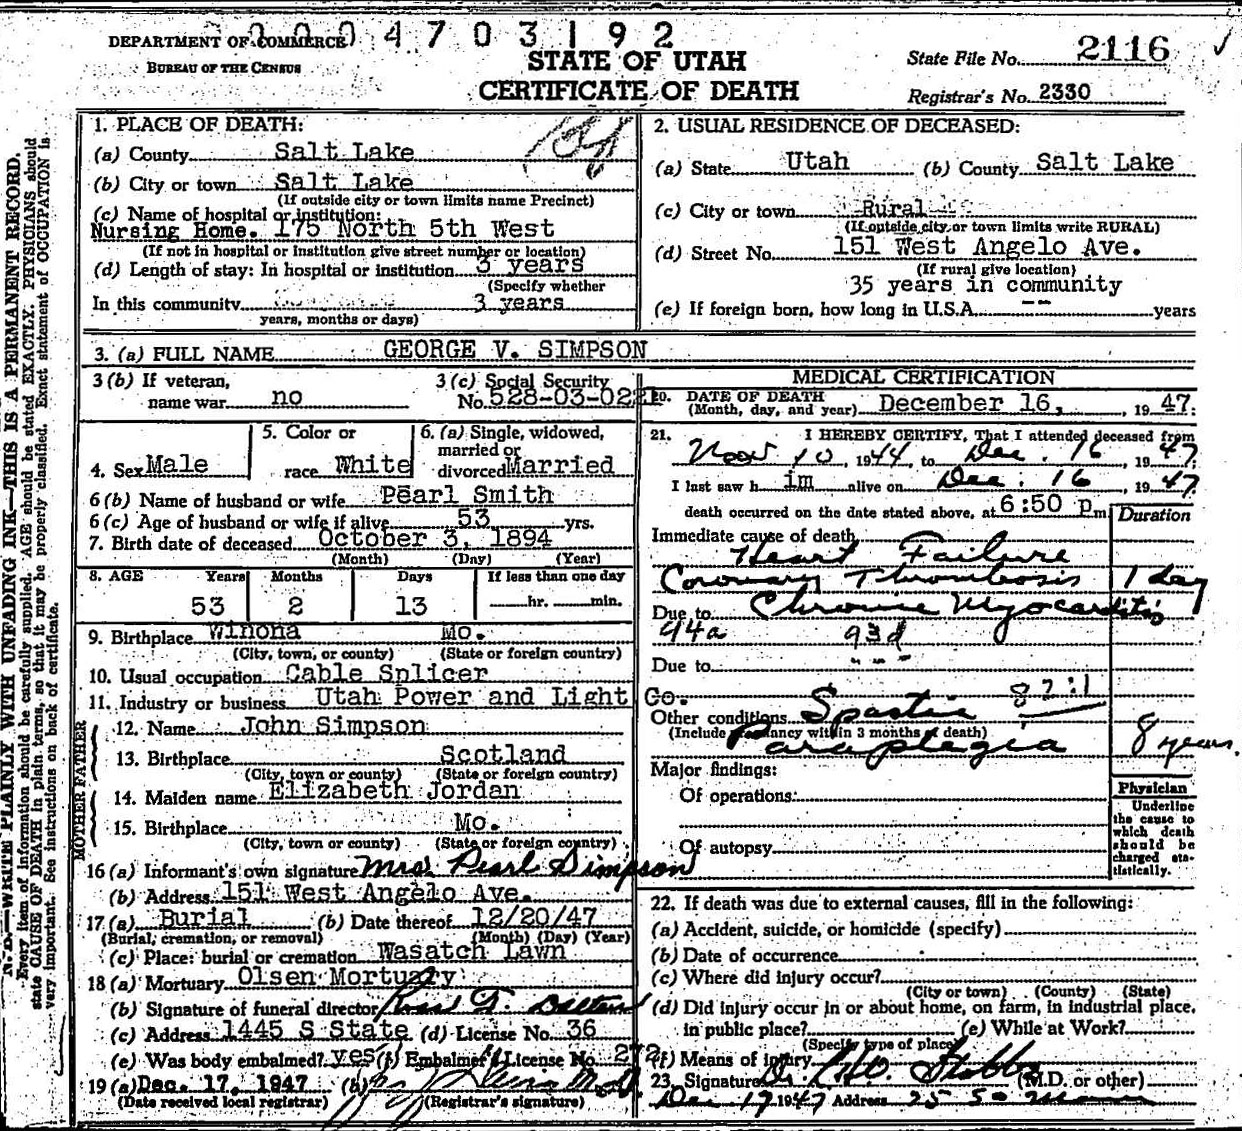 0004703192
DEPARTMENT OF COMMERCE
BUREAU OF THE CENSUS
STATE OF UTAH
CERTIFICATE OF DEATH
State File No. 2116
Registrar's No. 2330
N. B.—WRITE PLAINLY WITH UNFADING INK—THIS IS A PERMANENT RECORD.
Every item of information should be carefully supplied. AGE should be stated EXACTLY. PHYSICIANS should
state CAUSE OF DEATH in plain terms, so that it may be properly classified. Exact statement of OCCUPATION is
very important. See instructions on back of certificate.
1. PLACE OF DEATH:
(a) County Salt Lake
(b) City or town Salt Lake
(If outside city or town limits name Precinct)
(c) Name of hospital or institution:
Nursing Home. 175 North 5th West
(If not in hospital or institution give street number or location)
(d) Length of stay: In hospital or institution 3 years
(Specify whether
In this community 3 years
years, months or days)
2. USUAL RESIDENCE OF DECEASED:
(a) State Utah (b) County Salt Lake
(c) City or town Rural
(If outside city or town limits write RURAL)
(d) Street No. 151 West Angelo Ave.
(If rural give location)
35 years in community
(e) If foreign born, how long in U.S.A. -- years
3. (a) FULL NAME GEORGE V. SIMPSON
3 (b) If veteran,
name war no
3 (c) Social Security
No. 528-03-022
4. Sex Male
5. Color or
race White
6. (a) Single, widowed,
married or
divorced Married
6 (b) Name of husband or wife Pearl Smith
6 (c) Age of husband or wife if alive 53 yrs.
7. Birth date of deceased October 3, 1894
(Month) (Day) (Year)
8. AGE Years Months Days If less than one day
53 2 13 hr. min.
9. Birthplace Winona Mo.
(City, town, or county) (State or foreign country)
10. Usual occupation Cable Splicer
11. Industry or business Utah Power and Light Co.
FATHER
12. Name John Simpson
13. Birthplace Scotland
(City, town or county) (State or foreign country)
MOTHER
14. Maiden name Elizabeth Jordan
15. Birthplace Mo.
(City, town or county) (State or foreign country)
16 (a) Informant's own signature Mrs. Pearl Simpson
(b) Address 151 West Angelo Ave.
17 (a) Burial (b) Date thereof 12/20/47
(Burial, cremation, or removal) (Month) (Day) (Year)
(c) Place: burial or cremation Wasatch Lawn
18 (a) Mortuary Olsen Mortuary
(b) Signature of funeral director
(c) Address 1445 S State (d) License No. 36
(e) Was body embalmed? yes (f) Embalmer's License No. 272
19 (a) Dec. 17, 1947 (b)
(Date received local registrar) (Registrar's signature)
MEDICAL CERTIFICATION
20. DATE OF DEATH
(Month, day, and year) December 16, 19 47.
21. I HEREBY CERTIFY, That I attended deceased from
Nov 10, 1944, to Dec. 16, 19 47.
I last saw h im alive on Dec. 16, 19 47.
death occurred on the date stated above, at 6:50 p m
Duration
Immediate cause of death
Heart Failure
Coronary Thrombosis 1 day
Due to Chronic Myocarditis
94a 93d
Due to " - "
82:1
Other conditions Spastic
(Include pregnancy within 3 months of death)
Paraplegia 8 years.
Major findings:
Of operations:
Of autopsy
Physician
Underline
the cause to
which death
should be
charged sta-
tistically.
22. If death was due to external causes, fill in the following:
(a) Accident, suicide, or homicide (specify)
(b) Date of occurrence
(c) Where did injury occur?
(City or town) (County) (State)
(d) Did injury occur in or about home, on farm, in industrial place,
in public place? (e) While at Work?
(Specify type of place)
(f) Means of injury
23. Signature (M.D. or other)
Dec 17 1947 Address 25 So